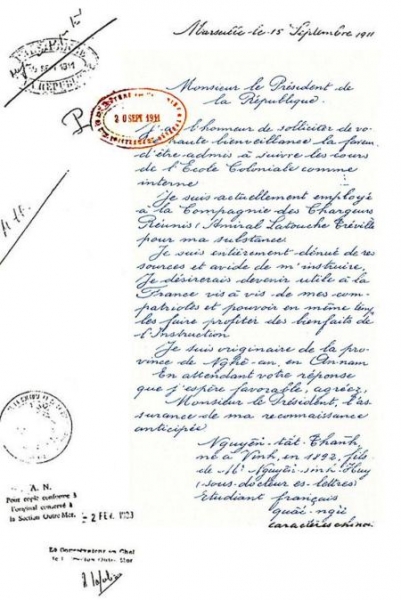 Marseille le 15 Septembre 1911
Monsieur le Président de
la République.
20 SEPT 1911
l'honneur de solliciter de vo-
haute bienveillance la faveur
d'être admis à suivre les cours
de l'Ecole Coloniale comme
interne
Je suis actuellement employé
à la Compagnie des Chargeurs
Réunis (Amiral Latouche Tréville
pour ma substance
Je suis entièrement dénué de res
sources et avide de m'instruire.
Je désirerais devenir utile à la
France vis à vis de mes com-
patriotes et pouvoir en même temps
les faire profiter des bienfaits de
l'Instruction
Je suis originaire de la pro-
vince de Nghê-an, en Annam
En attendant votre réponse
que j'espère favorable, agréez,
Monsieur le Président, l'as-
surance de ma reconnaissance
anticipée
Nguyên-tât-Thanh,
né à Vinh, en 1892, fils
de Mr Nguyên-sinh-Huy
(sous-docteur ès-lettres)
Etudiant français
quôc-ngu
caractères chinois
A. N.
Pour copie conforme à
l'original conservé à
la Section Outre-Mer.
2 FEV.
Le Conservateur en Chef